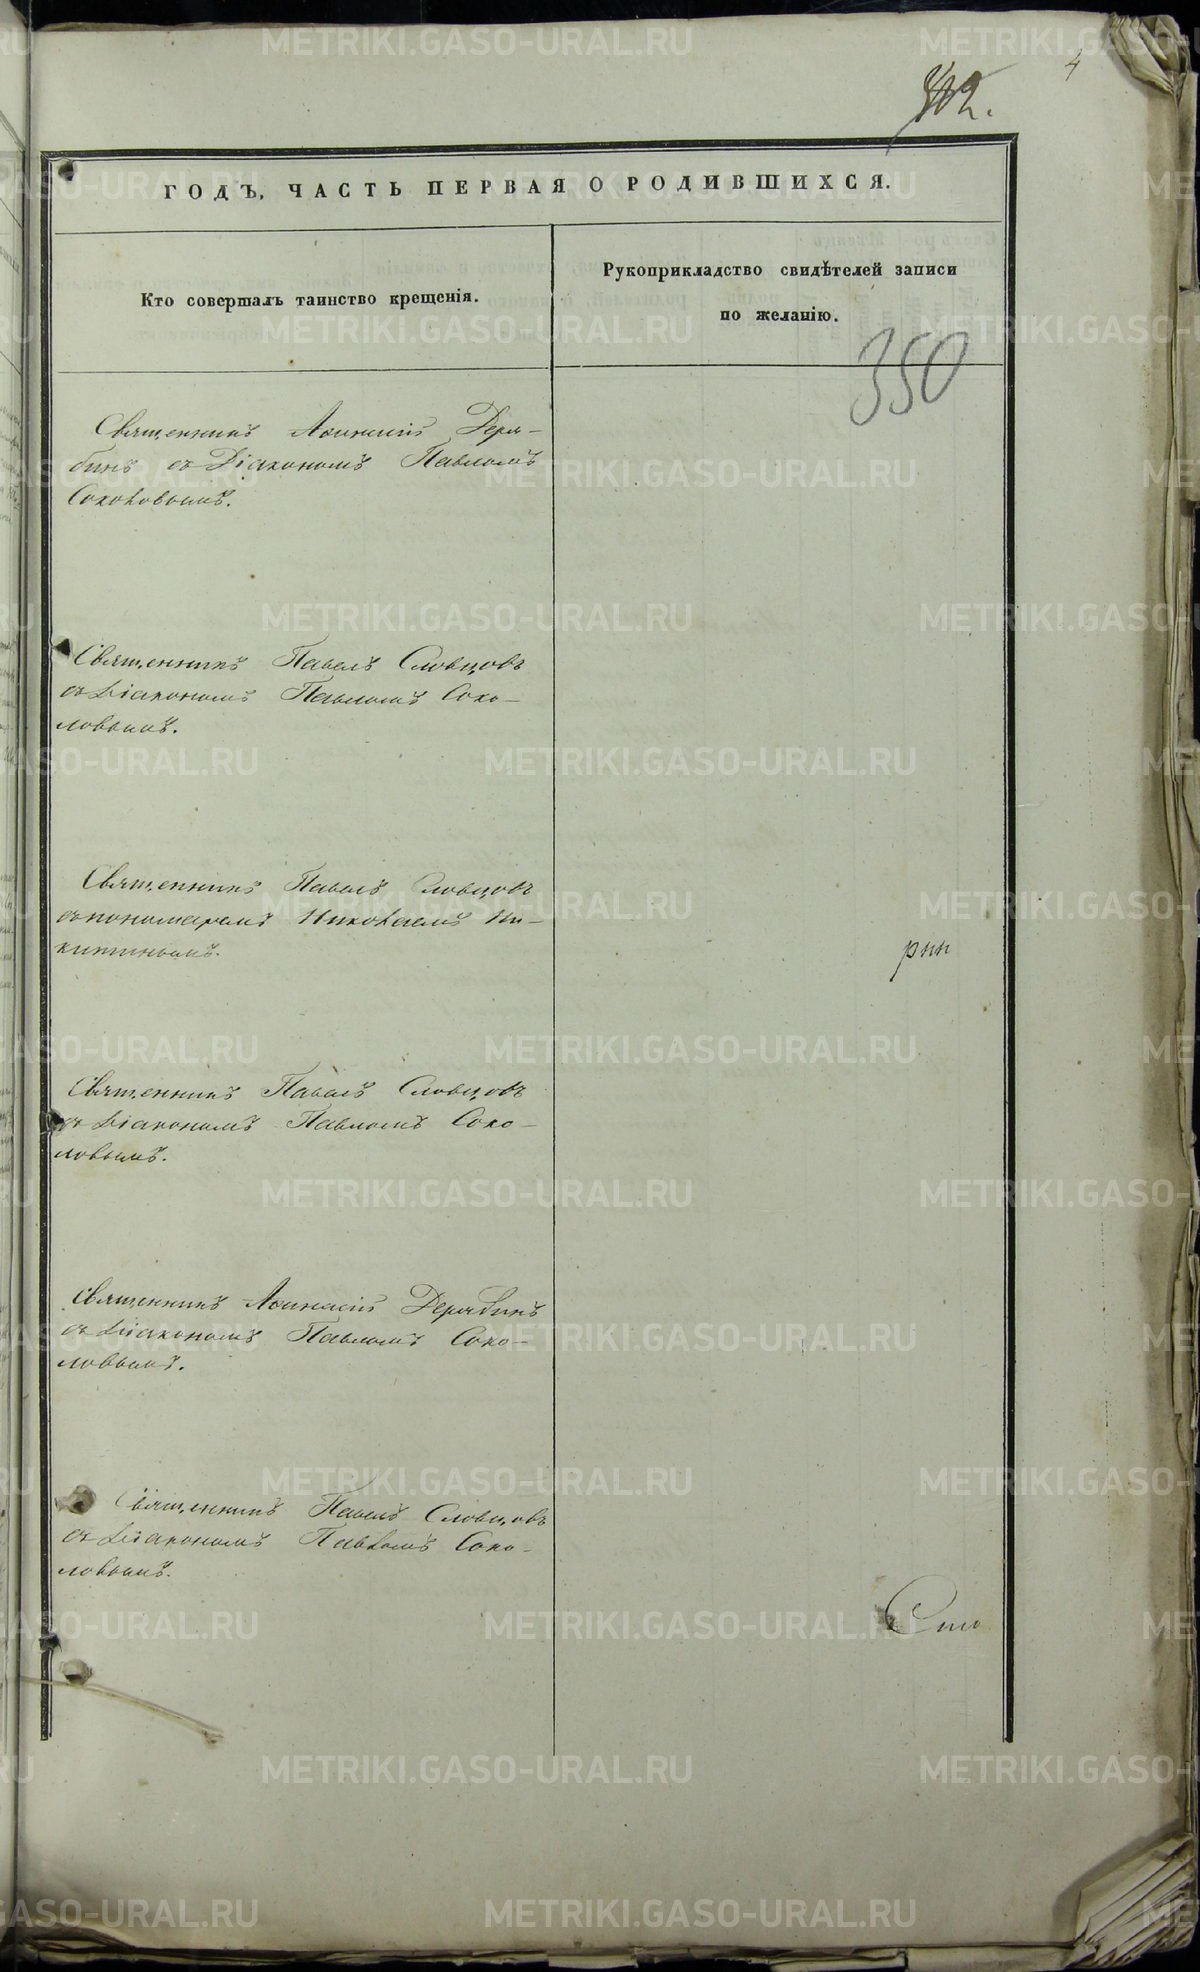 4
402.
ГОДЪ, ЧАСТЬ ПЕРВАЯ О РОДИВШИХСЯ.
Кто совершалъ таинство крещенія.
Рукоприкладство свидѣтелей записи
по желанію.
350
Священникъ Аѳанасій Деря-
бинъ съ Діакономъ Павломъ
Соколовымъ.
Священникъ Павелъ Словцовъ
съ Діакономъ Павломъ Соко-
ловымъ.
Священникъ Павелъ Словцовъ
съ пономаремъ Николаемъ Ни-
китинымъ.
Священникъ Павелъ Словцовъ
съ Діакономъ Павломъ Соко-
ловымъ.
Священникъ Аѳанасій Дерябинъ
съ Діакономъ Павломъ Соко-
ловымъ.
Священникъ Павелъ Словцовъ
съ Діакономъ Павломъ Соко-
ловымъ.
METRIKI.GASO-URAL.RU